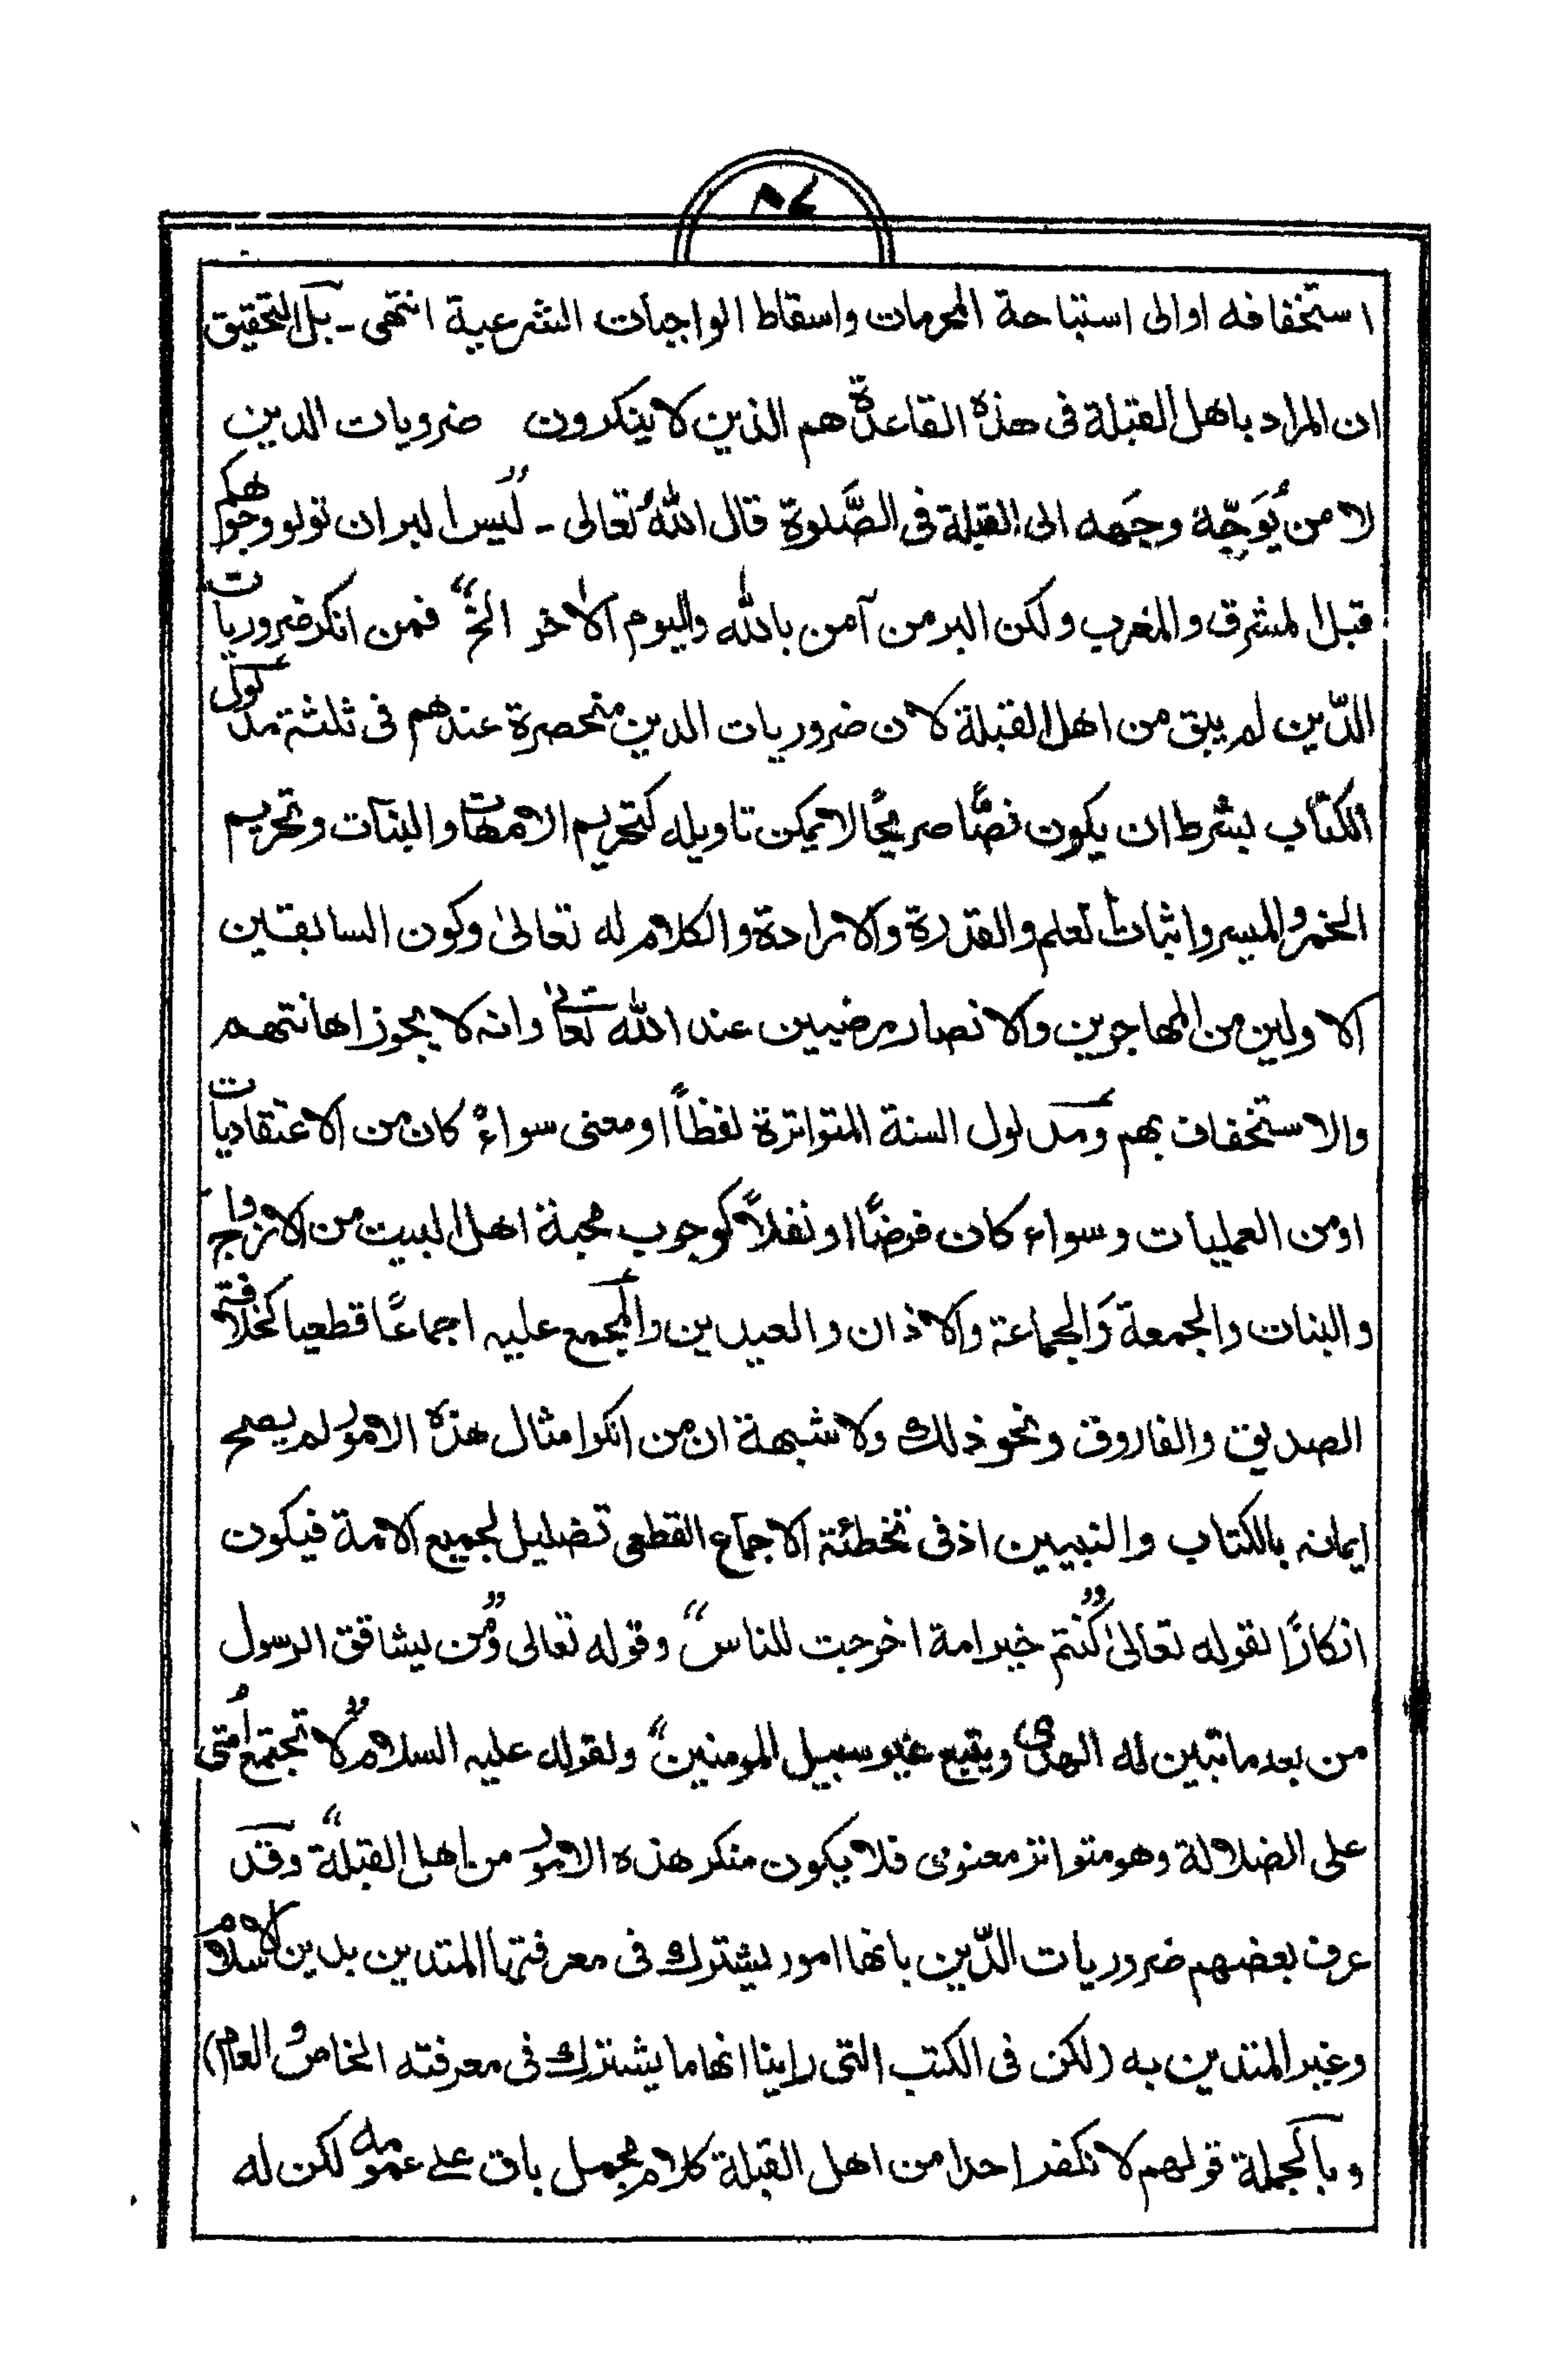 استخفافه او الى استباحة المحرمات واسقاط الواجبات الشرعية انتهى - بل التحقيق
ان المراد باهل القبلة فى هذه القاعدة هم الذين لا ينكرون ضرويات الدين
لا من يُوَجّه وجهه الى القبلة فى الصَّلوة قال اللهُ تعالى - "ليس البر ان تولو وجوهكم
قبل المشرق والمغرب ولكن البر من آمن بالله واليوم الاخر الخ" فمن انكر ضروريات
الدّين لم يبق من اهل القبلة لان ضروريات الدين منحصرة عندهم فى ثلثة مدلول
الكتاب بشرط ان يكون نصًّا صريحًا لا يمكن تاويله كتحريم الامهات والبنات وتحريم
الخمر والميسر واثبات العلم والقدرة والارادة والكلام له تعالىٰ وكون السابقين
الاولين من المهاجرين والانصار مرضيين عند الله تعالىٰ وانه لا يجوز اهانتهم
والاستخفاف بهم ومدلول السنة المتواترة لفظاً او معنى سواءٌ كان من الاعتقاديات
او من العمليات وسواء كان فرضًا او نفلاً كوجوب محبة اهل البيت من الازواج
والبنات والجمعة وَالجماعة والاذان والعيدين والمجمع عليه اجماعًا قطعيا كخلافة
الصديق والفاروق ونحو ذلك ولا شبهة ان من انكر امثال هذه الامور لم يصح
ايمانه بالكتاب والنبيين اذ فى تخطئة الاجماع القطعى تضليل لجميع الامة فيكون
انكارًا لقوله تعالىٰ "كنتم خير امة اخرجت للناس" وقوله تعالى "ومن يشاقق الرسول
من بعد ما تبين له الهدى ويتبع غير سبيل المومنين" ولقوله عليه السلام "لا تجتمع اُمتى
على الضلالة وهو متواتر معنوى فلا يكون منكر هذه الامور من اهل القبلة" وقد
عرف بعضهم ضروريات الدّين بانها امور يشترك فى معرفتها المتدين بدين الاسلام
وغير المتدين به (لكن فى الكتب التى راينا انها ما يشترك فى معرفته الخاص والعام)
وبالجملة قولهم لا نكفر احدا من اهل القبلة كلام مجمل باق على عمومه لكن له